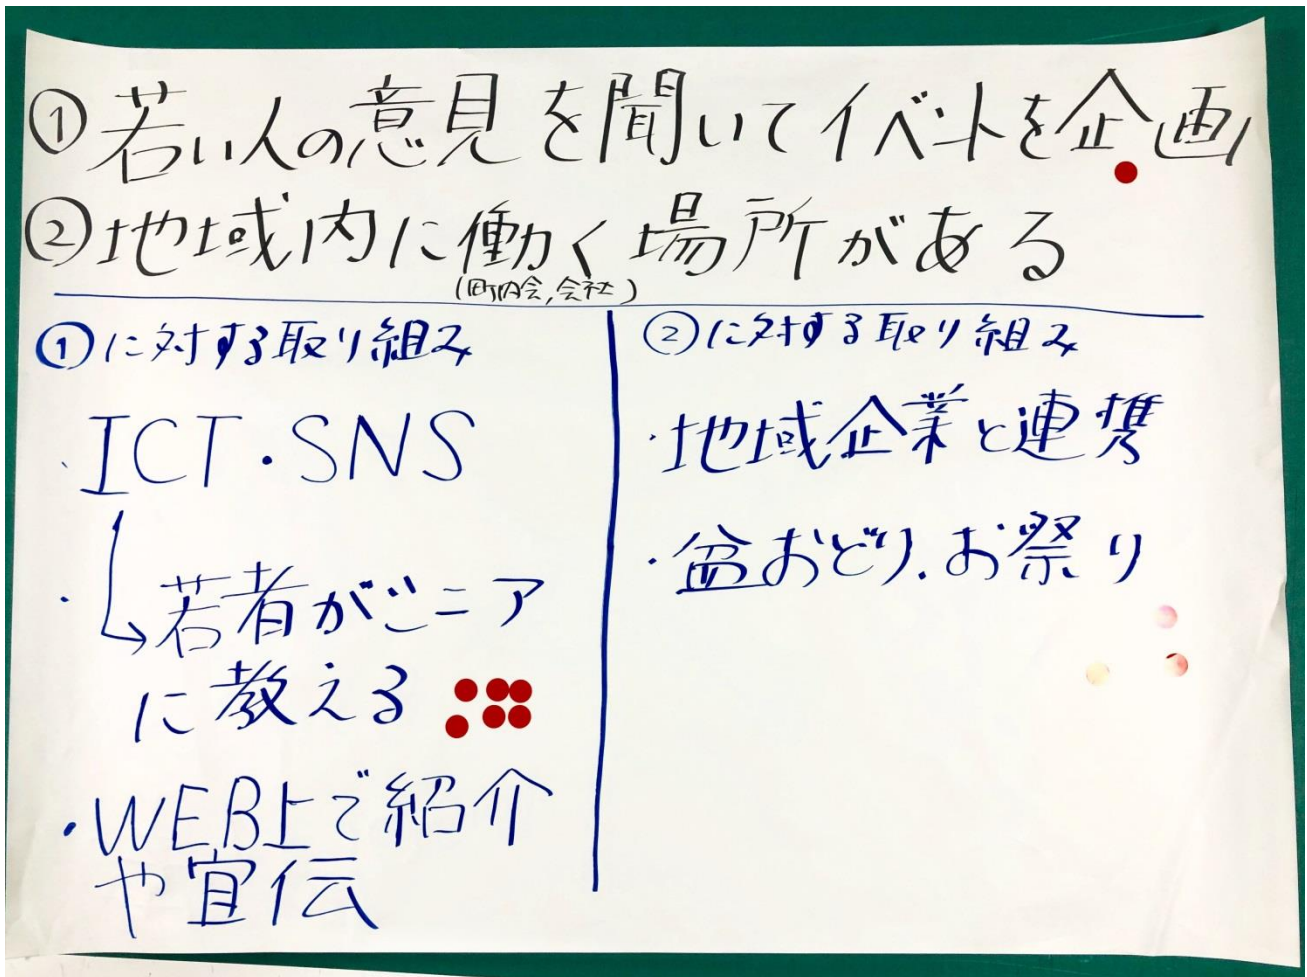 ①若い人の意見を聞いてイベントを企画
②地域内に働く場所がある
(町内会,会社)
①に対する取り組み
・ICT・SNS
・↳若者がシニア
に教える
・WEB上で紹介
や宣伝
②に対する取り組み
・地域企業と連携
・盆おどり.お祭り